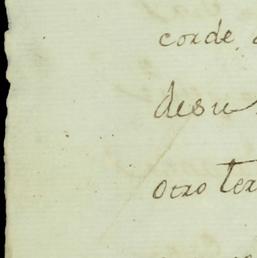 corde
desu
otro ter